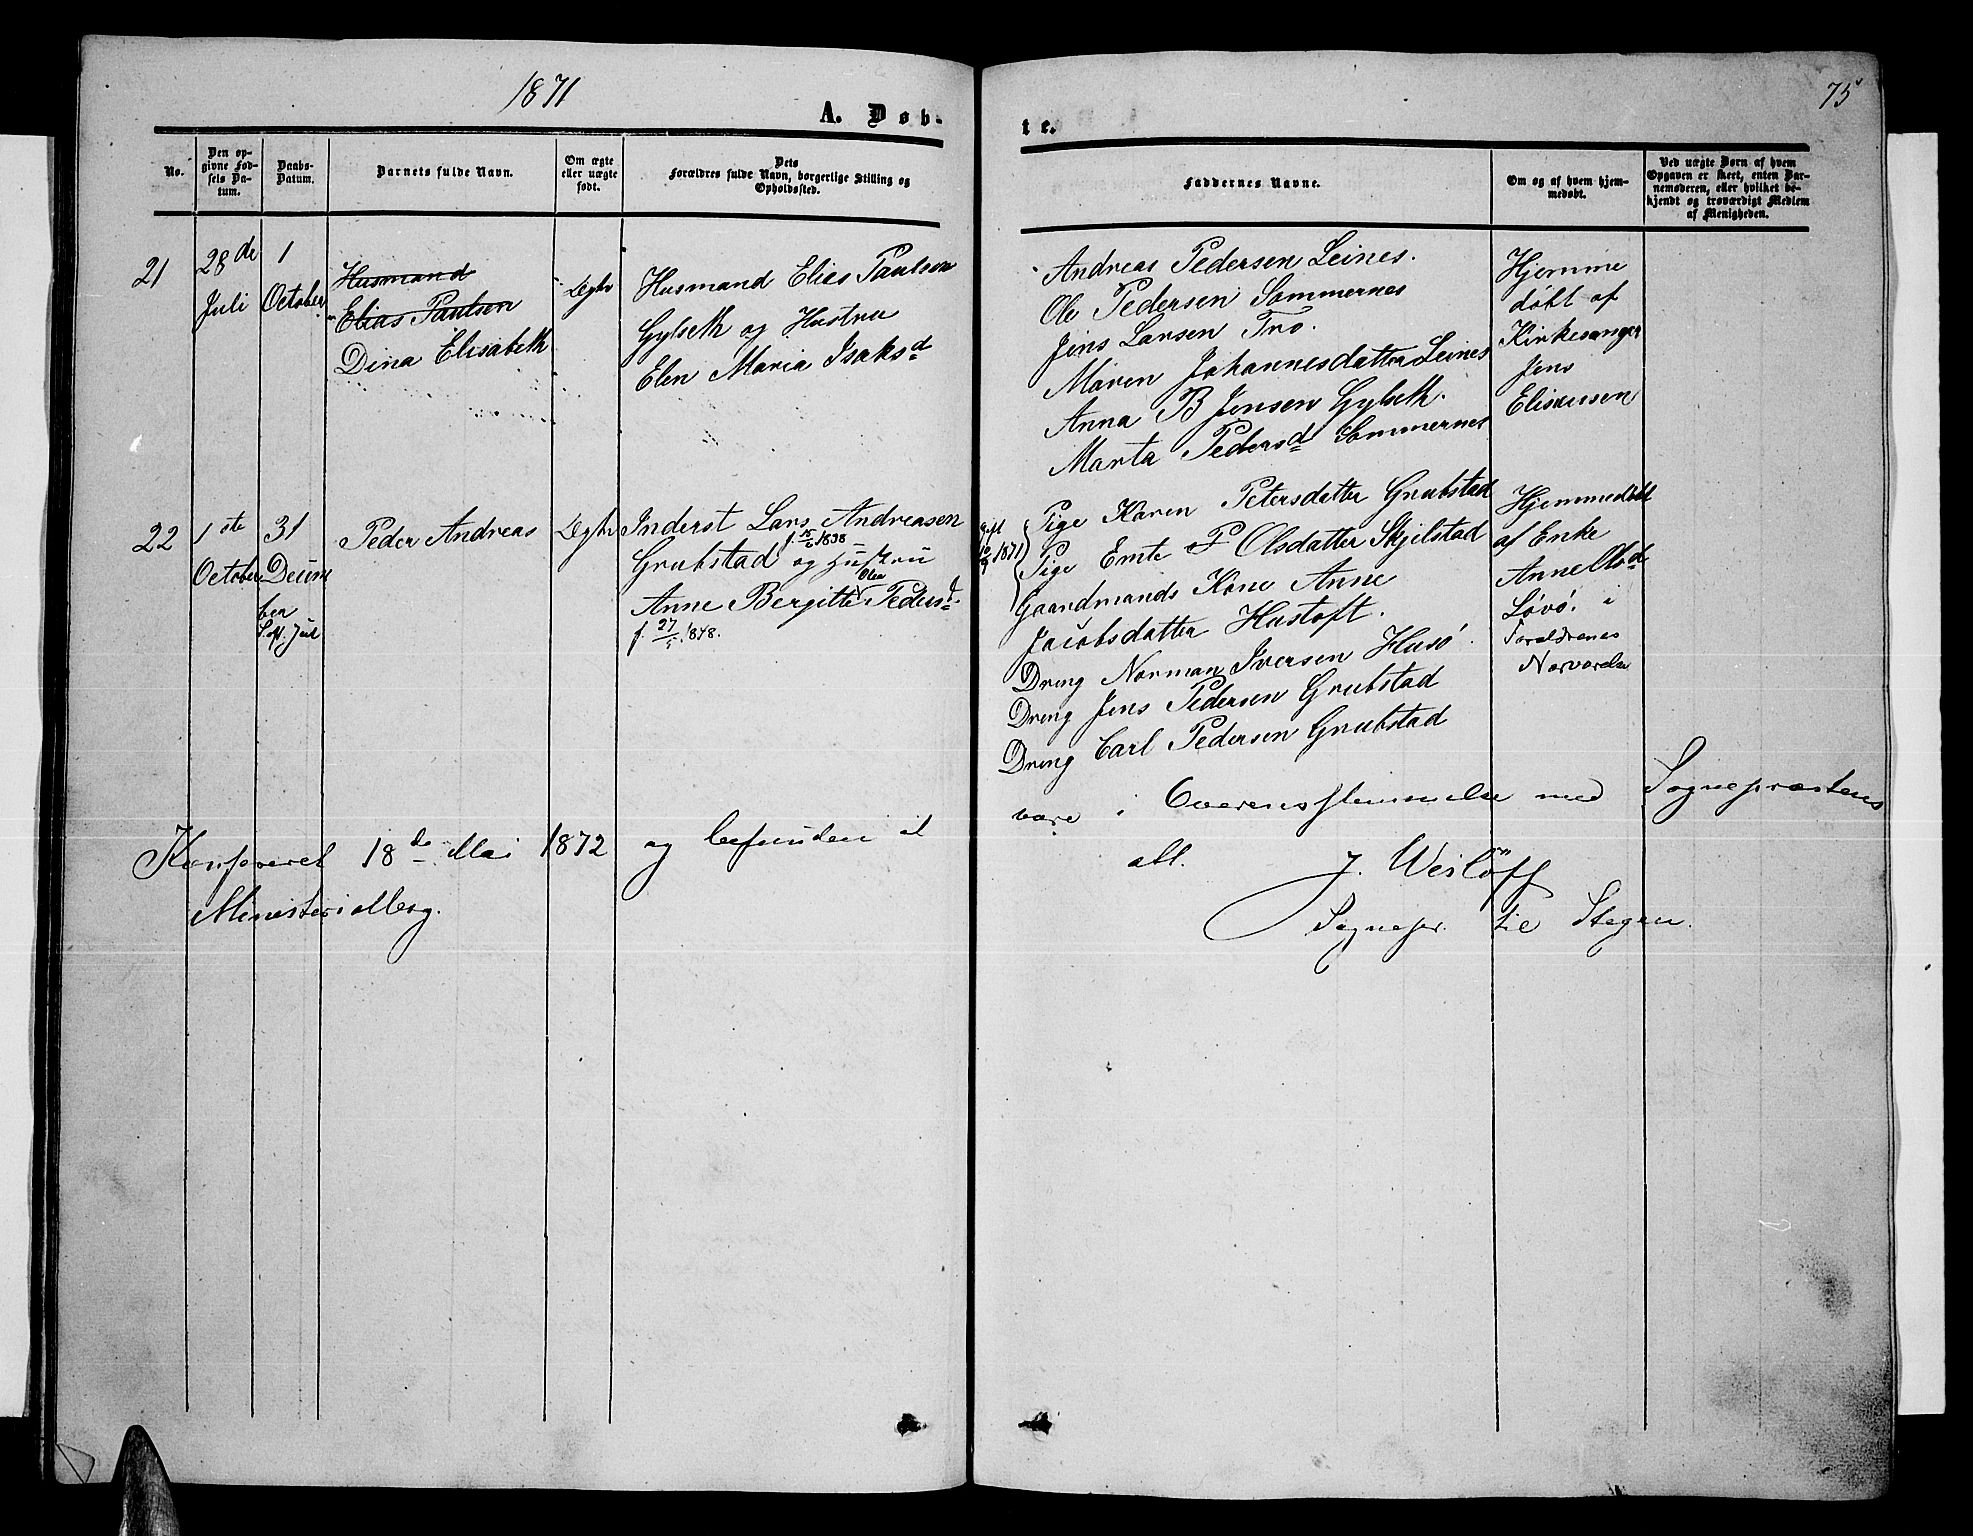 1871
75
A. Døb-
te.
No.
Den op-
givne Fød-
sels Da-
tum.
Daabs-
Datum.
Barnets fulde Navn.
Om ægte
eller uægte
født.
Dets
Forældres fulde Navn, borgerlige Stilling og
Opholdssted.
Faddernes Navne.
Om og af hvem hjem-
medøbt.
Ved uægte Børn af hvem
Opgaven er skeet, enten Bar-
nemoderen, eller hvilket be-
kjendt og troværdigt Medlem
af Menigheden.
21
28de
Juli
1
October
Husmand
Elias Paulsen
Dina Elisabeth
Ægte
Husmand Elias Paulsen
Gylseth og Hustru
Elen Maria Isaksd
Andreas Pedersen Leines.
Ole Pedersen Sommernes
Jens Larsen Tro.
Maren Johannesdatter Leines
Anna B Jensen Gylseth.
Marta Pedersd Sommernes
Hjemme
døbt af
Kirkesanger
Jens
Eliseusen
22
1ste
October
31
Decem
ber
Peder Andreas
Ægte
Inderst Lars Andreasen
Grubstad og Hustru
Olea
Anne Bergitte Pedersd.
f. 27/5 1848.
gift
1871
Pige Karen Petersdatter Grubstad
Pige Emte P Olsdatter Skjelstad
Gaardmands Kone Anne
Jacobsdatter Hustoft.
Dreng Norman Iversen Husø.
Dreng Jens Pedersen Grubstad
Dreng Carl Pedersen Grubstad
Hjemmedøbt
af Enke
Anne Olsd
Løvø. i
Foraldrenes
Nærværelse
Konfereret 18de Mai 1872 og befunden at
være i Overensstemmelse med Sognepræstens
Ministerialbog.
att.
J. Wisløff
Sognepr. til Stegen.